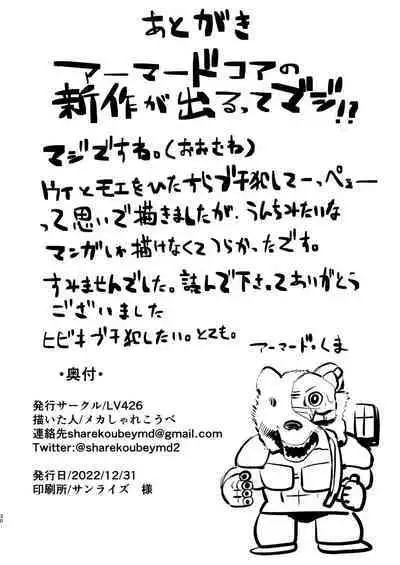 あとがき
アーマードコアの
新作が出るってマジ!?
マジですね。(おおむね)
ドゥイとモエをひたすらブチ犯してーっペェー
って思いで描きましたが、うんちみたいな
マンガしか描けなくてつらかったです。
すみませんでした。読んで下さってありがとう
ございました
ヒビキブチ犯したい。とても。
アーマード・くま
・奥付・
発行サークル/LV426
描いた人/メカしゃれこうべ
連絡先sharekoubeymd@gmail.com
Twitter:@sharekoubeymd2
発行日/2022/12/31
印刷所/サンライズ 様